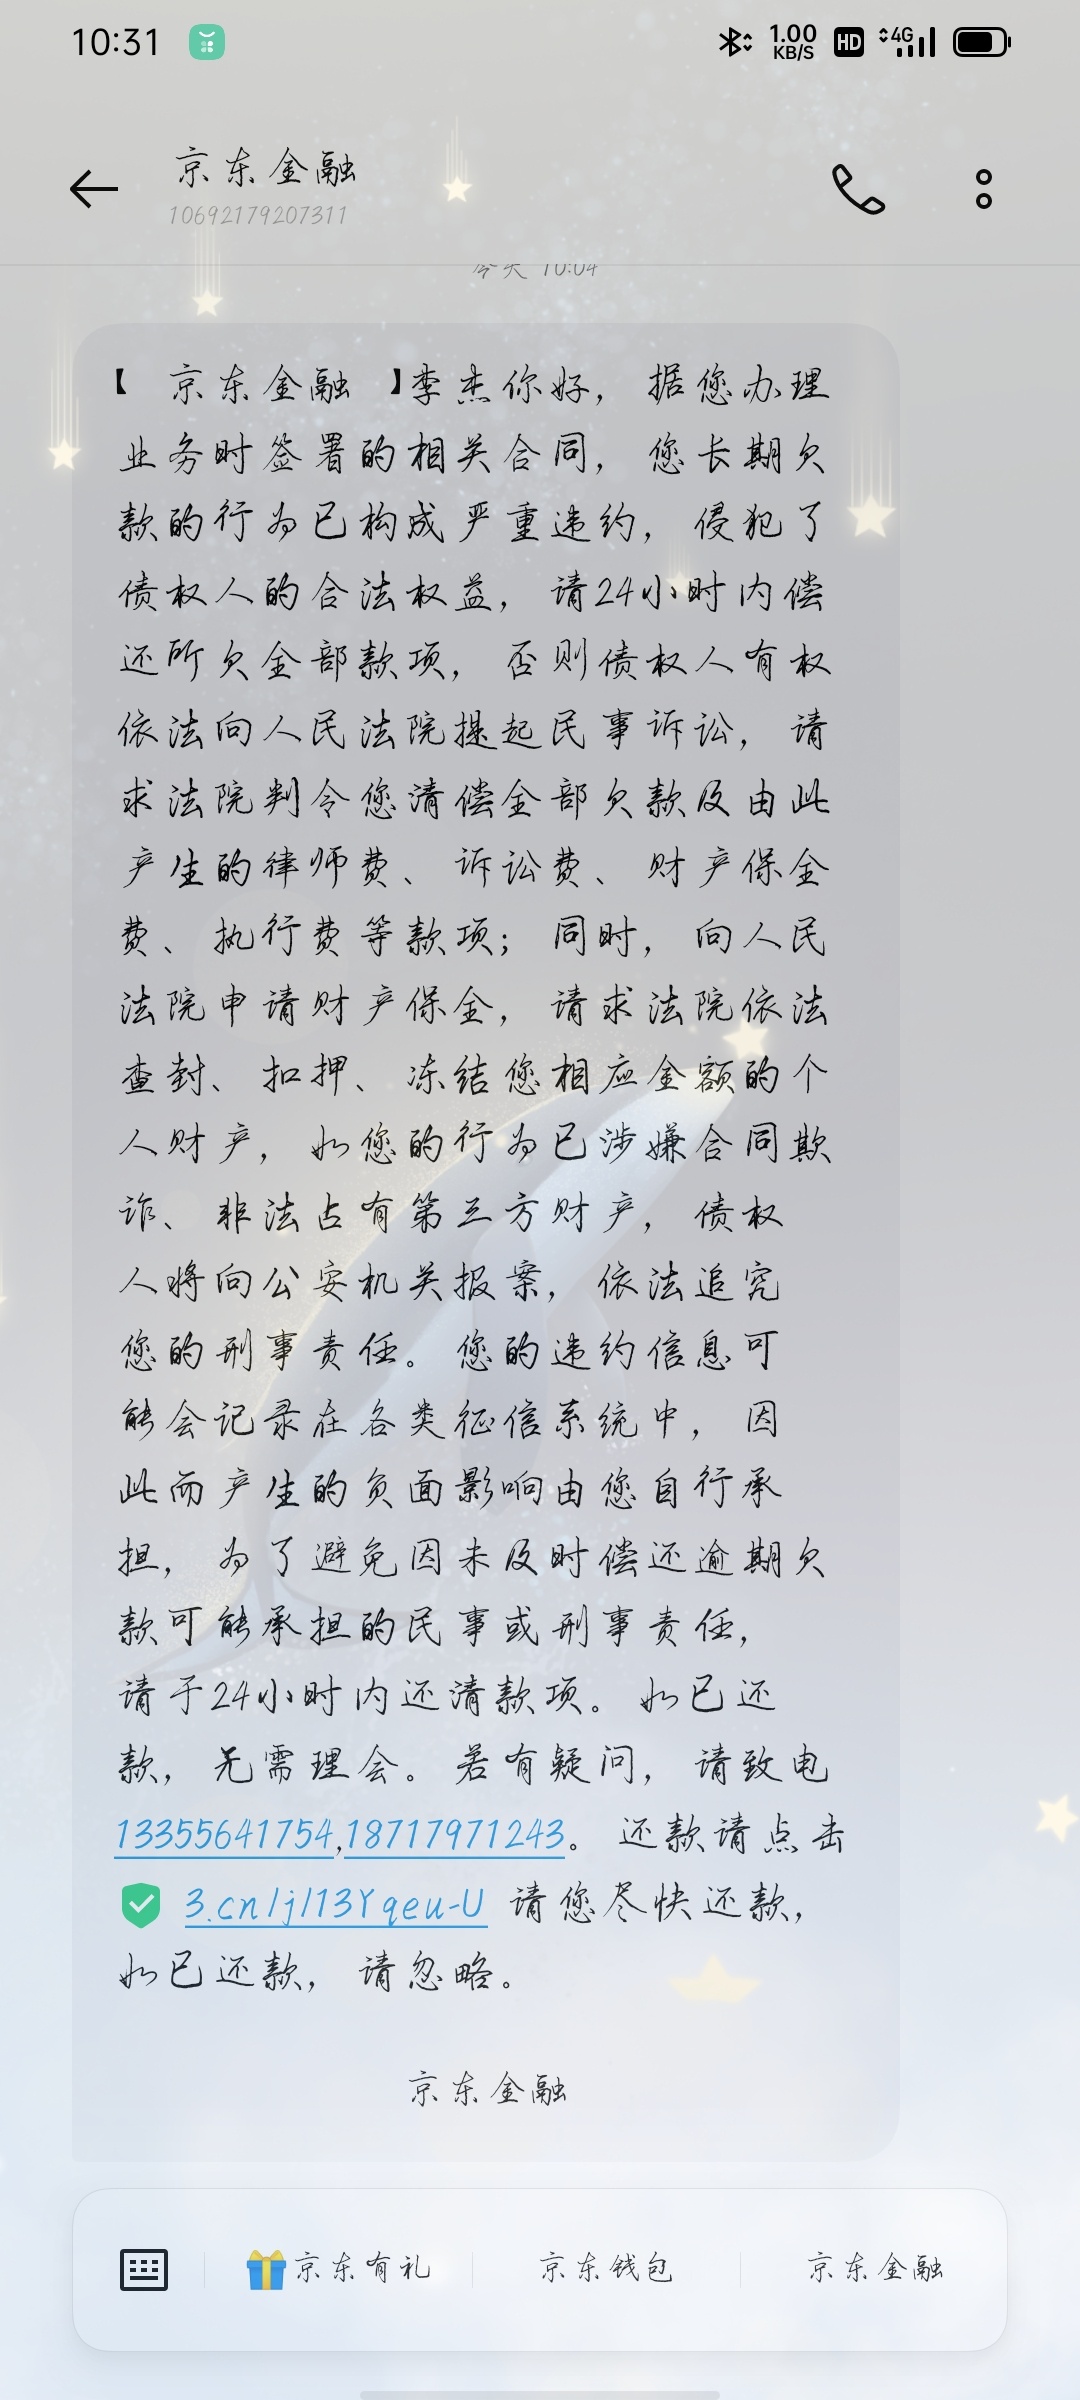 10:31
1.00
KB/S
HD
4G
京东金融
10692179207311
今天 10:04
【 京东金融 】李杰你好，据您办理
业务时签署的相关合同，您长期欠
款的行为已构成严重违约，侵犯了
债权人的合法权益，请24小时内偿
还所欠全部款项，否则债权人有权
依法向人民法院提起民事诉讼，请
求法院判令您清偿全部欠款及由此
产生的律师费、诉讼费、财产保全
费、执行费等款项；同时，向人民
法院申请财产保全，请求法院依法
查封、扣押、冻结您相应金额的个
人财产，如您的行为已涉嫌合同欺
诈、非法占有第三方财产，债权
人将向公安机关报案，依法追究
您的刑事责任。您的违约信息可
能会记录在各类征信系统中，因
此而产生的负面影响由您自行承
担，为了避免因未及时偿还逾期欠
款可能承担的民事或刑事责任，
请于24小时内还清款项。如已还
款，无需理会。若有疑问，请致电
13355641754,18717971243。还款请点击
3.cn/j/13Yqeu-U 请您尽快还款，
如已还款，请忽略。
京东金融
京东有礼
京东钱包
京东金融